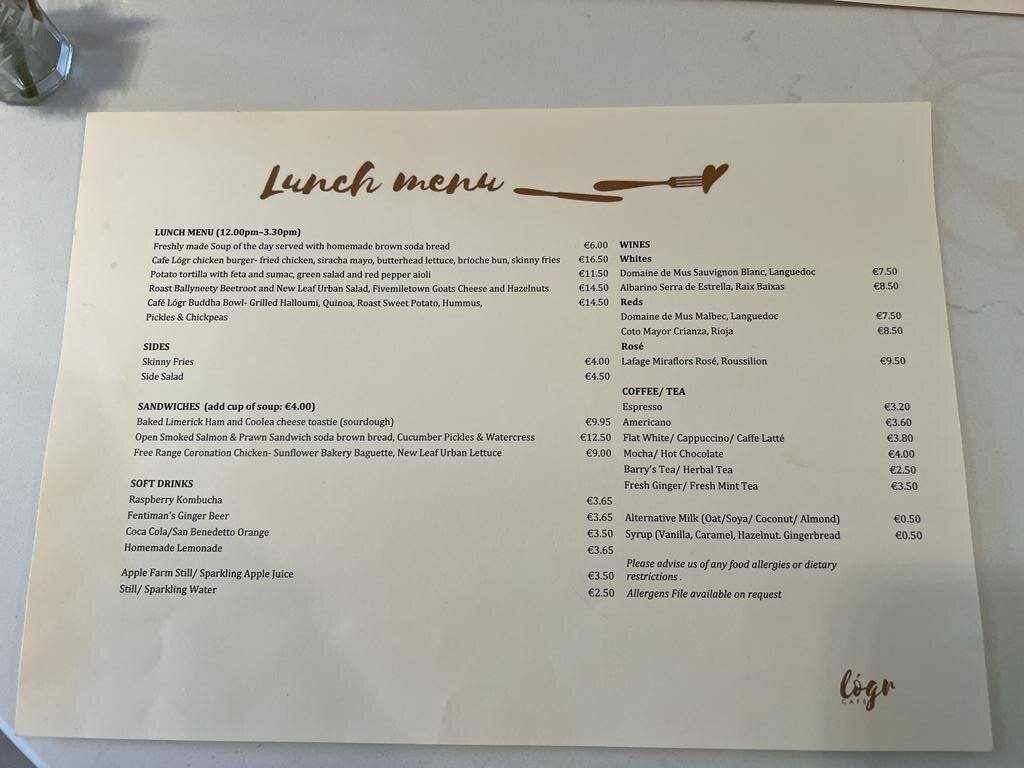 Lunch menu
LUNCH MENU (12.00pm–3.30pm)
Freshly made Soup of the day served with homemade brown soda bread €6.00
Cafe Lógr chicken burger- fried chicken, siracha mayo, butterhead lettuce, brioche bun, skinny fries €16.50
Potato tortilla with feta and sumac, green salad and red pepper aioli €11.50
Roast Ballyneety Beetroot and New Leaf Urban Salad, Fivemiletown Goats Cheese and Hazelnuts €14.50
Café Lógr Buddha Bowl- Grilled Halloumi, Quinoa, Roast Sweet Potato, Hummus, €14.50
Pickles & Chickpeas
SIDES
Skinny Fries €4.00
Side Salad €4.50
SANDWICHES (add cup of soup: €4.00)
Baked Limerick Ham and Coolea cheese toastie (sourdough) €9.95
Open Smoked Salmon & Prawn Sandwich soda brown bread, Cucumber Pickles & Watercress €12.50
Free Range Coronation Chicken- Sunflower Bakery Baguette, New Leaf Urban Lettuce €9.00
SOFT DRINKS
Raspberry Kombucha €3.65
Fentiman's Ginger Beer €3.65
Coca Cola/San Benedetto Orange €3.50
Homemade Lemonade €3.65
Apple Farm Still/ Sparkling Apple Juice €3.50
Still/ Sparkling Water €2.50
WINES
Whites
Domaine de Mus Sauvignon Blanc, Languedoc €7.50
Albarino Serra de Estrella, Raix Baixas €8.50
Reds
Domaine de Mus Malbec, Languedoc €7.50
Coto Mayor Crianza, Rioja €8.50
Rosé
Lafage Miraflors Rosé, Roussilion €9.50
COFFEE/ TEA
Espresso €3.20
Americano €3.60
Flat White/ Cappuccino/ Caffe Latté €3.80
Mocha/ Hot Chocolate €4.00
Barry's Tea/ Herbal Tea €2.50
Fresh Ginger/ Fresh Mint Tea €3.50
Alternative Milk (Oat/Soya/ Coconut/ Almond) €0.50
Syrup (Vanilla, Caramel, Hazelnut. Gingerbread €0.50
Please advise us of any food allergies or dietary
restrictions .
Allergens File available on request
lógr
CAFE